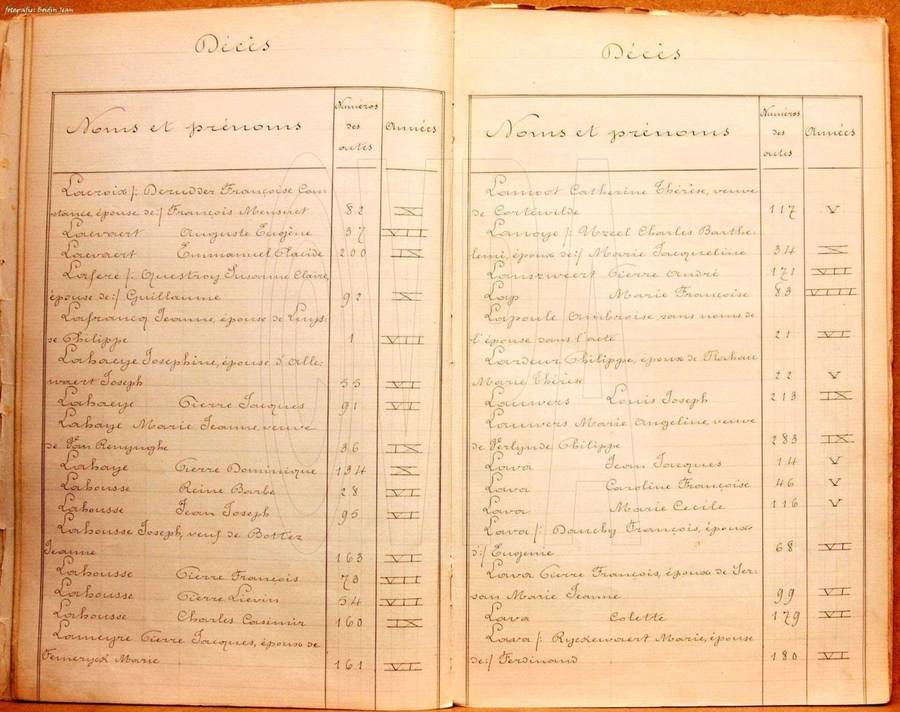 fotografie: Beidin Jean
Décès
Noms et prénoms Numéros des actes Années
Lacroix /: Derudder Françoise Cons
tance, épouse de :/ François Mensuet 82 IX
Laevaert Auguste Eugène 37 VII
Laevaert Emmanuel Placide 200 IX
Lafere /: Questroy Susanne Claire
épouse de :/ Guillaume 92 X
Lafrancq Jeanne, épouse de Luys
se Philippe 1 VII
Lahaeye Josephine, épouse d'Alle
waert Joseph 55 VI
Lahaeye Pierre Jacques 91 VI
Lahaye Marie Jeanne, veuve
de Van Renynghe 36 IX
Lahaye Pierre Dominique 134 X
Lahousse Reine Barbe 28 VI
Lahousse Jean Joseph 95 VI
Lahousse Joseph, veuf de Botter
Jeanne 163 VI
Lahousse Pierre François 73 VII
Lahousse Pierre Liévin 54 VII
Lahousse Charles Casimir 160 IX
Lameyre Pierre Jacques, épouse de
Femeryck Marie 161 VI
Décès
Noms et prénoms Numéros des actes Années
Lamoot Catherine Thérèse, veuve
de Cortewilde 117 V
Lanoye /: Uzeel Charles Barthe
lemi, époux de :/ Marie Jacqueline 34 X
Lanszweert Pierre André 171 VII
Lap Marie Françoise 83 VIII
Lapoule Ambroise, sans noms de
l'épouse dans l'acte 21 VI
Lardeur Philippe, époux de Flahau
Marie Thérèse 22 V
Lauwers Louis Joseph 213 IX
Lauwers Marie Angeline, veuve
de Verlynde Philippe 283 IX
Lava Jean Jacques 14 V
Lava Caroline Françoise 46 V
Lava Marie Cecile 116 V
Lava /: Dauchy François, époux
d :/ Eugenie 68 VI
Lava Pierre François, époux de Ser
san Marie Jeanne 99 VI
Lava Colette 179 VI
Lava /: Ryckewaert Marie, épouse
de :/ Ferdinand 180 VI